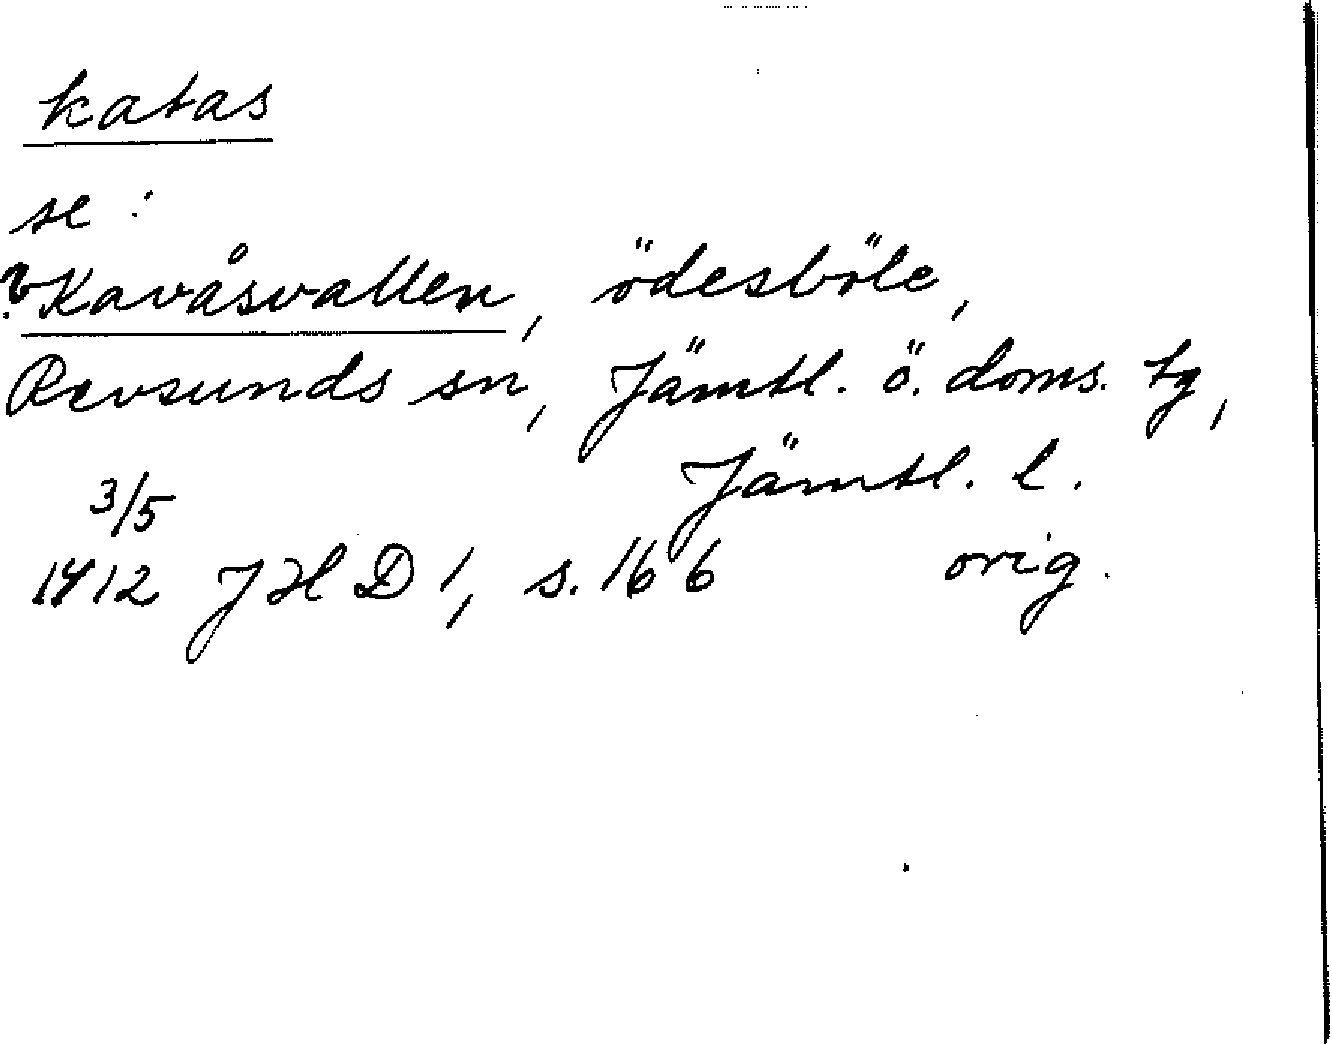 katas
se:
? Kavåsvallen, ödesböle,
Revsunds sn, Jämtl. ö. doms. tg,
Jämtl. l.
3/5
1412 JHD 1, s. 166 orig.